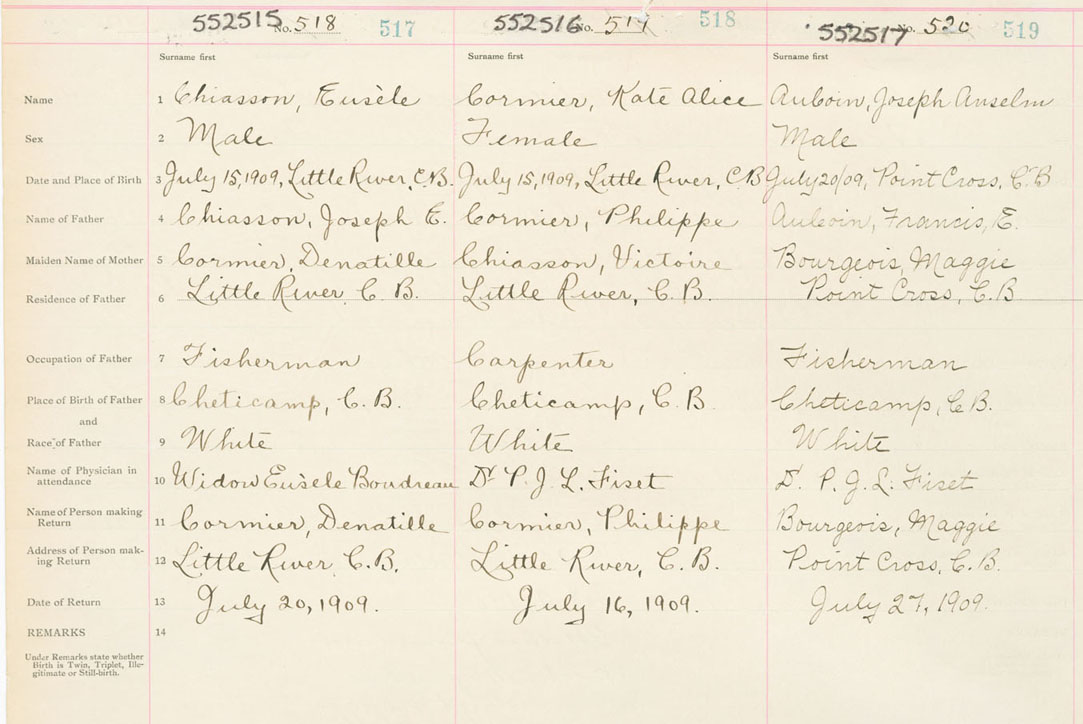 552515 No. 518 517 552516 No. 519 518 552517 No. 520 519
Surname first Surname first Surname first
Name 1 Chiasson, Eusèle Cormier, Kate Alice AuCoin, Joseph Anselm
Sex 2 Male Female Male
Date and Place of Birth 3 July 15, 1909, Little River, C.B. July 15, 1909, Little River, C B July 20/09, Point Cross, C. B
Name of Father 4 Chiasson, Joseph E. Cormier, Philippe AuCoin, Francis, E.
Maiden Name of Mother 5 Cormier, Denatille Chiasson, Victoire Bourgeois, Maggie
Residence of Father 6 Little River, C. B. Little River, C. B. Point Cross, C. B.
Occupation of Father 7 Fisherman Carpenter Fisherman
Place of Birth of Father 8 Cheticamp, C. B. Cheticamp, C. B. Cheticamp, C. B.
and
Race of Father 9 White White White
Name of Physician in
attendance 10 Widow Eusèle Boudreau Dr. P. J. L. Fiset Dr. P. J. L. Fiset
Name of Person making
Return 11 Cormier, Denatille Cormier, Philippe Bourgeois, Maggie
Address of Person mak-
ing Return 12 Little River, C. B. Little River, C. B. Point Cross, C. B.
Date of Return 13 July 20, 1909. July 16, 1909. July 27, 1909.
REMARKS 14
Under Remarks state whether
Birth is Twin, Triplet, Ille-
gitimate or Still-birth.